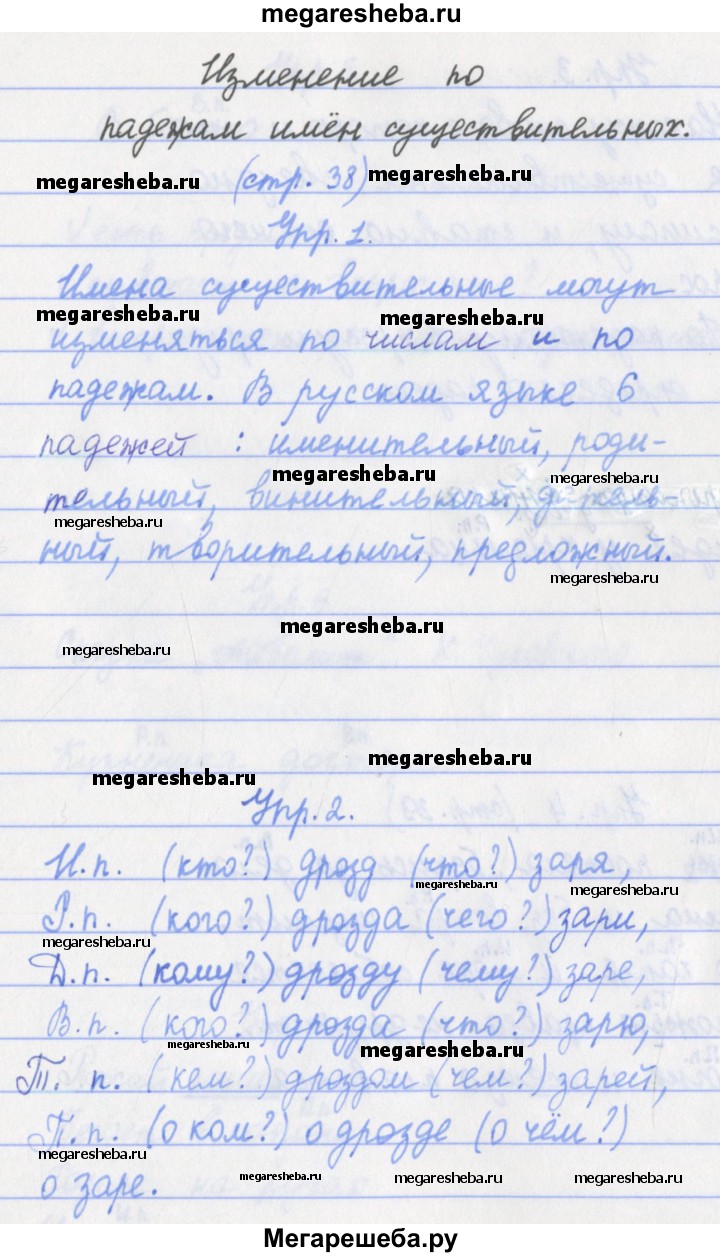 megaresheba.ru
Изменение по
падежам имён существительных.
megaresheba.ru (стр. 38) megaresheba.ru
Упр. 1.
Имена существительные могут
megaresheba.ru megaresheba.ru
изменяться по числам и по
падежам. В русском языке 6
падежей : именительный, роди-
megaresheba.ru megaresheba.ru
тельный, винительный, датель-
megaresheba.ru megaresheba.ru
ный, творительный, предложный.
megaresheba.ru
megaresheba.ru
megaresheba.ru
megaresheba.ru
megaresheba.ru
Упр. 2.
И.п. (кто? дрозд (что?) заря,
megaresheba.ru megaresheba.ru
Р.п. (кого?) дрозда (чего?) зари,
megaresheba.ru
Д.п. (кому?) дрозду (чему?) заре,
В.п. (кого?) дрозда (что?) зарю,
megaresheba.ru megaresheba.ru
Т. п. (кем?) дроздом (чем?) зарей,
П.п. (о ком?) о дрозде (о чём?)
megaresheba.ru megaresheba.ru
о заре.
megaresheba.ru megaresheba.ru megaresheba.ru
Мегарешеба.ру